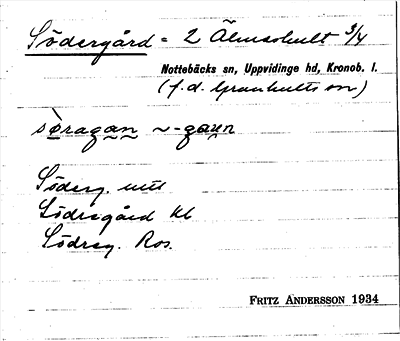 Södergård = 2 Älmashult 3/4
Nottebäcks sn, Uppvidinge hd, Kronob. l.
(f.d. Granhults sn)
sòragan ~-gaun
Söderg. utt
Södregård Kb
Södreg. Ros.
FRITZ ANDERSSON 1934